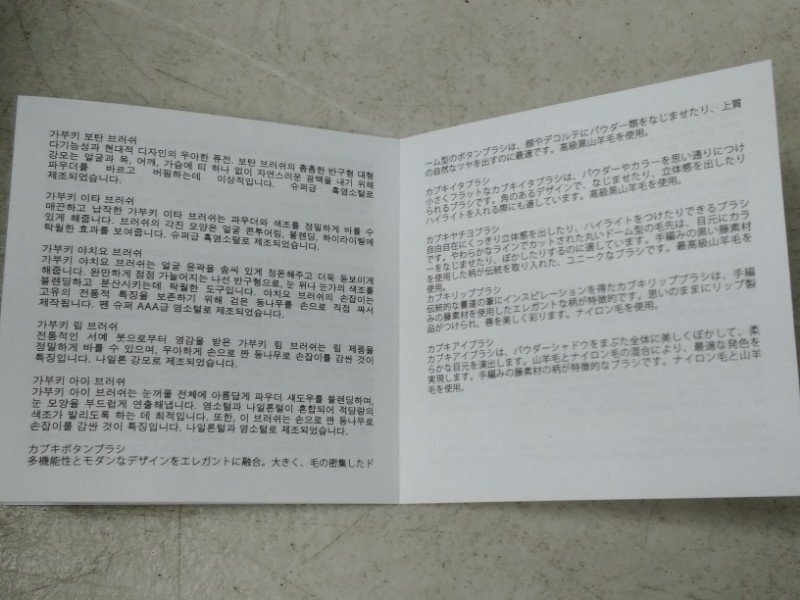 가부키 보탄 브러쉬
다기능성과 현대적 디자인의 우아한 퓨전. 보탄 브러쉬의 촘촘한 반구형 대형
강모는 얼굴과 목, 어깨, 가슴에 티 하나 없이 자연스러운 광택을 내기 위해
파우더를 바르고 버핑하는데 이상적입니다. 슈퍼급 흑염소털로
제조되었습니다.
가부키 이타 브러쉬
매끈하고 납작한 가부키 이타 브러쉬는 파우더와 색조를 정밀하게 바를 수
있게 해줍니다. 브러쉬의 각진 모양은 얼굴 콘투어링, 블렌딩, 하이라이팅에
탁월한 효과를 보여줍니다. 슈퍼급 흑염소털로 제조되었습니다.
가부키 야치요 브러쉬
가부키 야치요 브러쉬는 얼굴 윤곽을 솜씨 있게 정돈해주고 더욱 돋보이게
해줍니다. 완만하게 점점 가늘어지는 나선 반구형으로, 눈 위나 눈가의 색조를
블렌딩하고 분산시키는데 탁월한 도구입니다. 야치요 브러쉬의 손잡이는
고유의 전통적 특징을 보존하기 위해 검은 등나무를 손으로 직접 짜서
제작됩니다. 팬 슈퍼 AAA급 염소털로 제조되었습니다.
가부키 립 브러쉬
전통적인 서예 붓으로부터 영감을 받은 가부키 립 브러쉬는 립 제품을
정밀하게 바를 수 있으며, 우아하게 손으로 짠 등나무로 손잡이를 감싼 것이
특징입니다. 나일론 강모로 제조되었습니다.
가부키 아이 브러쉬
가부키 아이 브러쉬는 눈꺼풀 전체에 아름답게 파우더 섀도우를 블렌딩하며,
눈 모양을 부드럽게 연출해냅니다. 염소털과 나일론털이 혼합되어 적당량의
색조가 발리도록 하는 데 최적입니다. 또한, 이 브러쉬는 손으로 짠 등나무로
손잡이를 감싼 것이 특징입니다. 나일론털과 염소털로 제조되었습니다.
カブキボタンブラシ
多機能性とモダンなデザインをエレガントに融合。大きく、毛の密集したド
ーム型のボタンブラシは、顔やデコルテにパウダー類をなじませたり、上質
の自然なツヤを出すのに最適です。高級黒山羊毛を使用。
カブキイタブラシ
小さくフラットなカブキイタブラシは、パウダーやカラーを思い通りにつけ
られるブラシです。角のあるデザインで、なじませたり、立体感を出したり
ハイライトを入れる際にも適しています。高級黒山羊毛を使用。
カブキヤチヨブラシ
自由自在にくっきり立体感を出したり、ハイライトをつけたりできるブラシ
です。やわらかなラインでカットされた丸いドーム型の毛先は、目元にカラ
ーをなじませたり、ぼかしたりするのに適しています。手編みの黒い藤素材
を使用した柄が伝統を取り入れた、ユニークなブラシです。最高級山羊毛を
使用。
カブキリップブラシ
伝統的な書道の筆にインスピレーションを得たカブキリップブラシは、手編
みの藤素材を使用したエレガントな柄が特徴的です。思いのままにリップ製
品がつけられ、唇を美しく彩ります。ナイロン毛を使用。
カブキアイブラシ
カブキアイブラシは、パウダーシャドウをまぶた全体に美しくぼかして、柔
らかな目元を演出します。山羊毛とナイロン毛の混合により、最適な発色を
実現します。手編みの藤素材の柄が特徴的なブラシです。ナイロン毛と山羊
毛を使用。